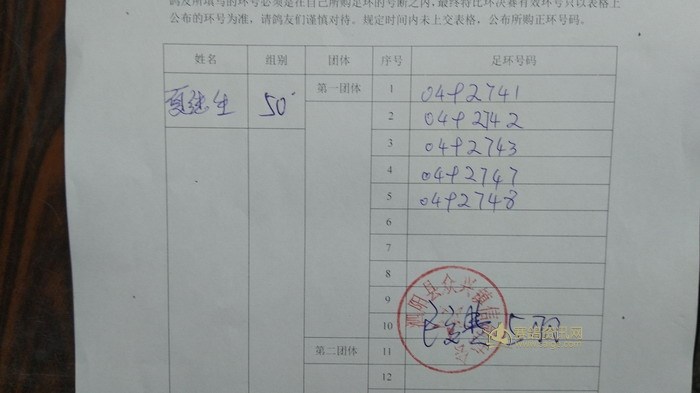 鸽友所填写的环号必须是在自己所购足环的号断之内,最终特比环决赛有效环号只以表格上
公布的环号为准，请鸽友们谨慎对待。规定时间内未上交表格，公布所购正环号码。
姓名 组别 团体 序号 足环号码
夏继生 50 第一团体 1 0492741
2 0492742
3 0492743
4 0492747
5 0492748
6
7
8
9
10
第二团体 11
12
泗阳县众兴镇信